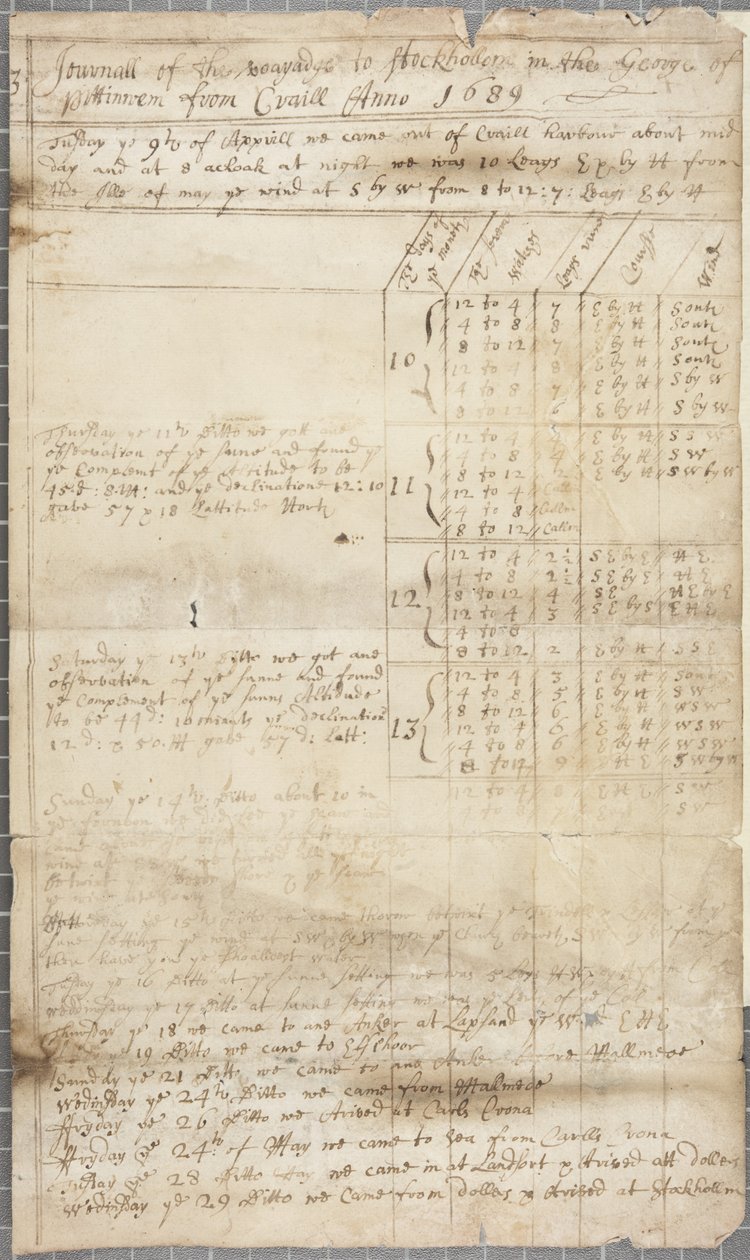 3
Journall of the voayadge to Stockhollem in the George of
Pittinwem from Craill Anno 1689
Tusday ye 9th of Appvill we came out of Craill harbour about mid
day and at 8 acloak at night we was 10 Leags E p by N from
the Ille of may ye wind at S by W from 8 to 12 : 7 : Leags E by N
The days of ye moneth
The severall Watches
Leags rune
Course
Wind
10
12 to 4 7 E by N South
4 to 8 8 E by N South
8 to 12 7 E by N South
12 to 4 8 E by N South
4 to 8 7 E by N S by W
8 to 12 6 E by N S by W
Thursday ye 11th Ditto we gott ane
observation of ye sune and found ye
ye Complent of ye Altitude to be
45 d : 8 M : and ye declinatione 12 : 10
gave 57 x 18 Lattitude North
11
12 to 4 4 E by N S S W
4 to 8 4 E by N S W
8 to 12 2 E by N S W by W
12 to 4 Callm
4 to 8 Callm
8 to 12 Callm
12
12 to 4 2 1/2 S E by E N E
4 to 8 2 1/2 S E by E N E
8 to 12 4 S E N E by E
12 to 4 3 S E by S E N E
4 to 8
8 to 12 2 E by N S S E
Saturday ye 13th Ditto we got ane
observation of ye sunne and found
ye Complement of ye sunns Altitude
to be 44 d : 10 minuts ye declination
12 d : x 50 M gave 57 d : Latt :
13
12 to 4 3 E by N South
4 to 8 5 E by N S W
8 to 12 6 E by N W S W
12 to 4 6 E by N W S W
4 to 8 6 E by N W S W
8 to 12 9 E N E S W by W
12 to 4 8 E N E S W
4 to 8 S W
Sunday ye 14th Ditto about 10 in
ye fornoon we did see ye
wind att
betwixt ye shore x ye
ye wind att
ye 15th Ditto we came thorow betwixt ye x att ye
sune setting ye wind at S W by W when ye Church beareth S W by W from you
then have you ye shoallest water
Tusday ye 16 Ditto at ye sunne setting we was 5 Legs from
Weddinsday ye 17 Ditto at sunne setting we was ye of ye Coll
Thursday ye 18 we came to ane Anker at Lapsand ye Wind E N E
ye 19 Ditto we came to Ellshoor
Sunday ye 21 Ditto we came to ane Anker before Mallmeoe
Wedinsday ye 24th Ditto we came from Malmeoe
Fryday ye 26 Ditto we Arived at Carls Crona
Fryday ye 24th of May we came to sea from Carlls Crona
Tusday ye 28 Ditto May we came in at Landsort x Arived att dollers
Wednesday ye 29 Ditto we Came from dollers x Arived at Stockhollm